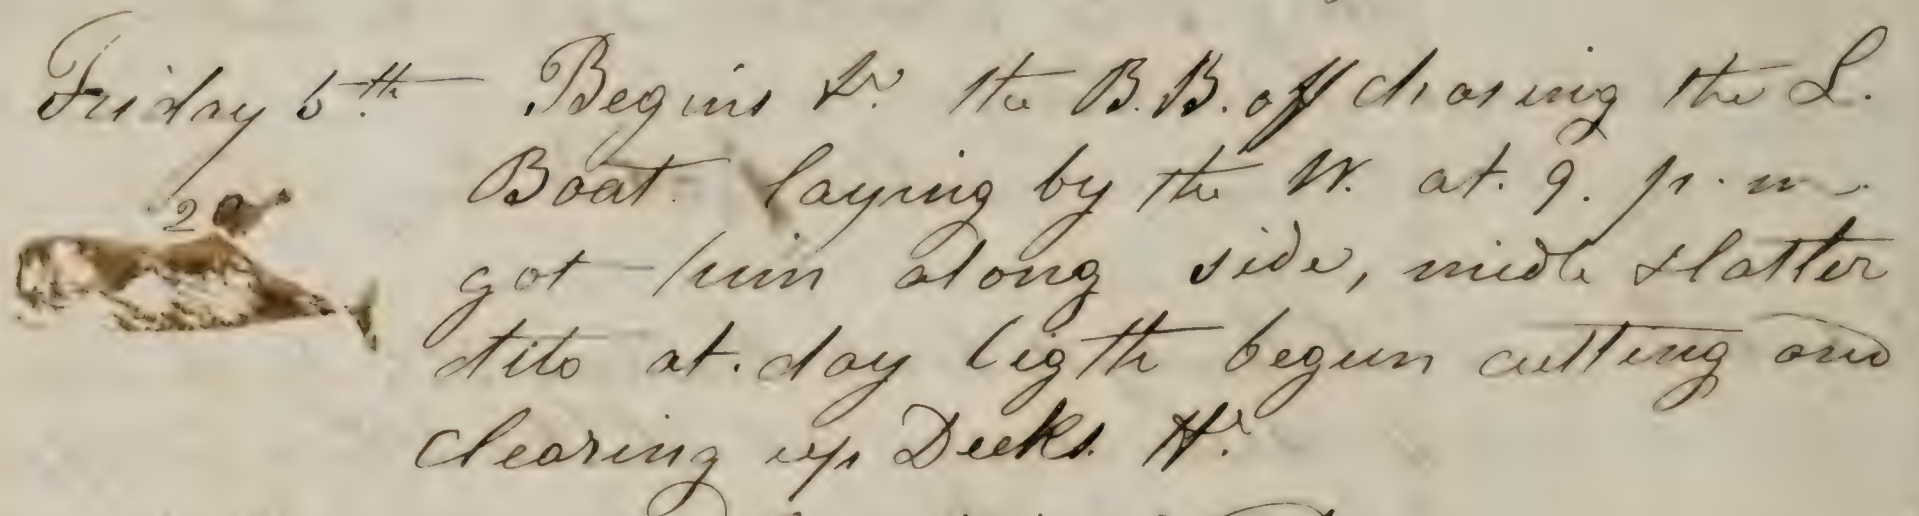 Friday 6th Begins Lr. the B.B. off chasing the L.
Boat laying by the W. at. 9. p.m.
got him along side, midle & latter
dito at. day ligth begun cutting and
clearing up Decks.
2